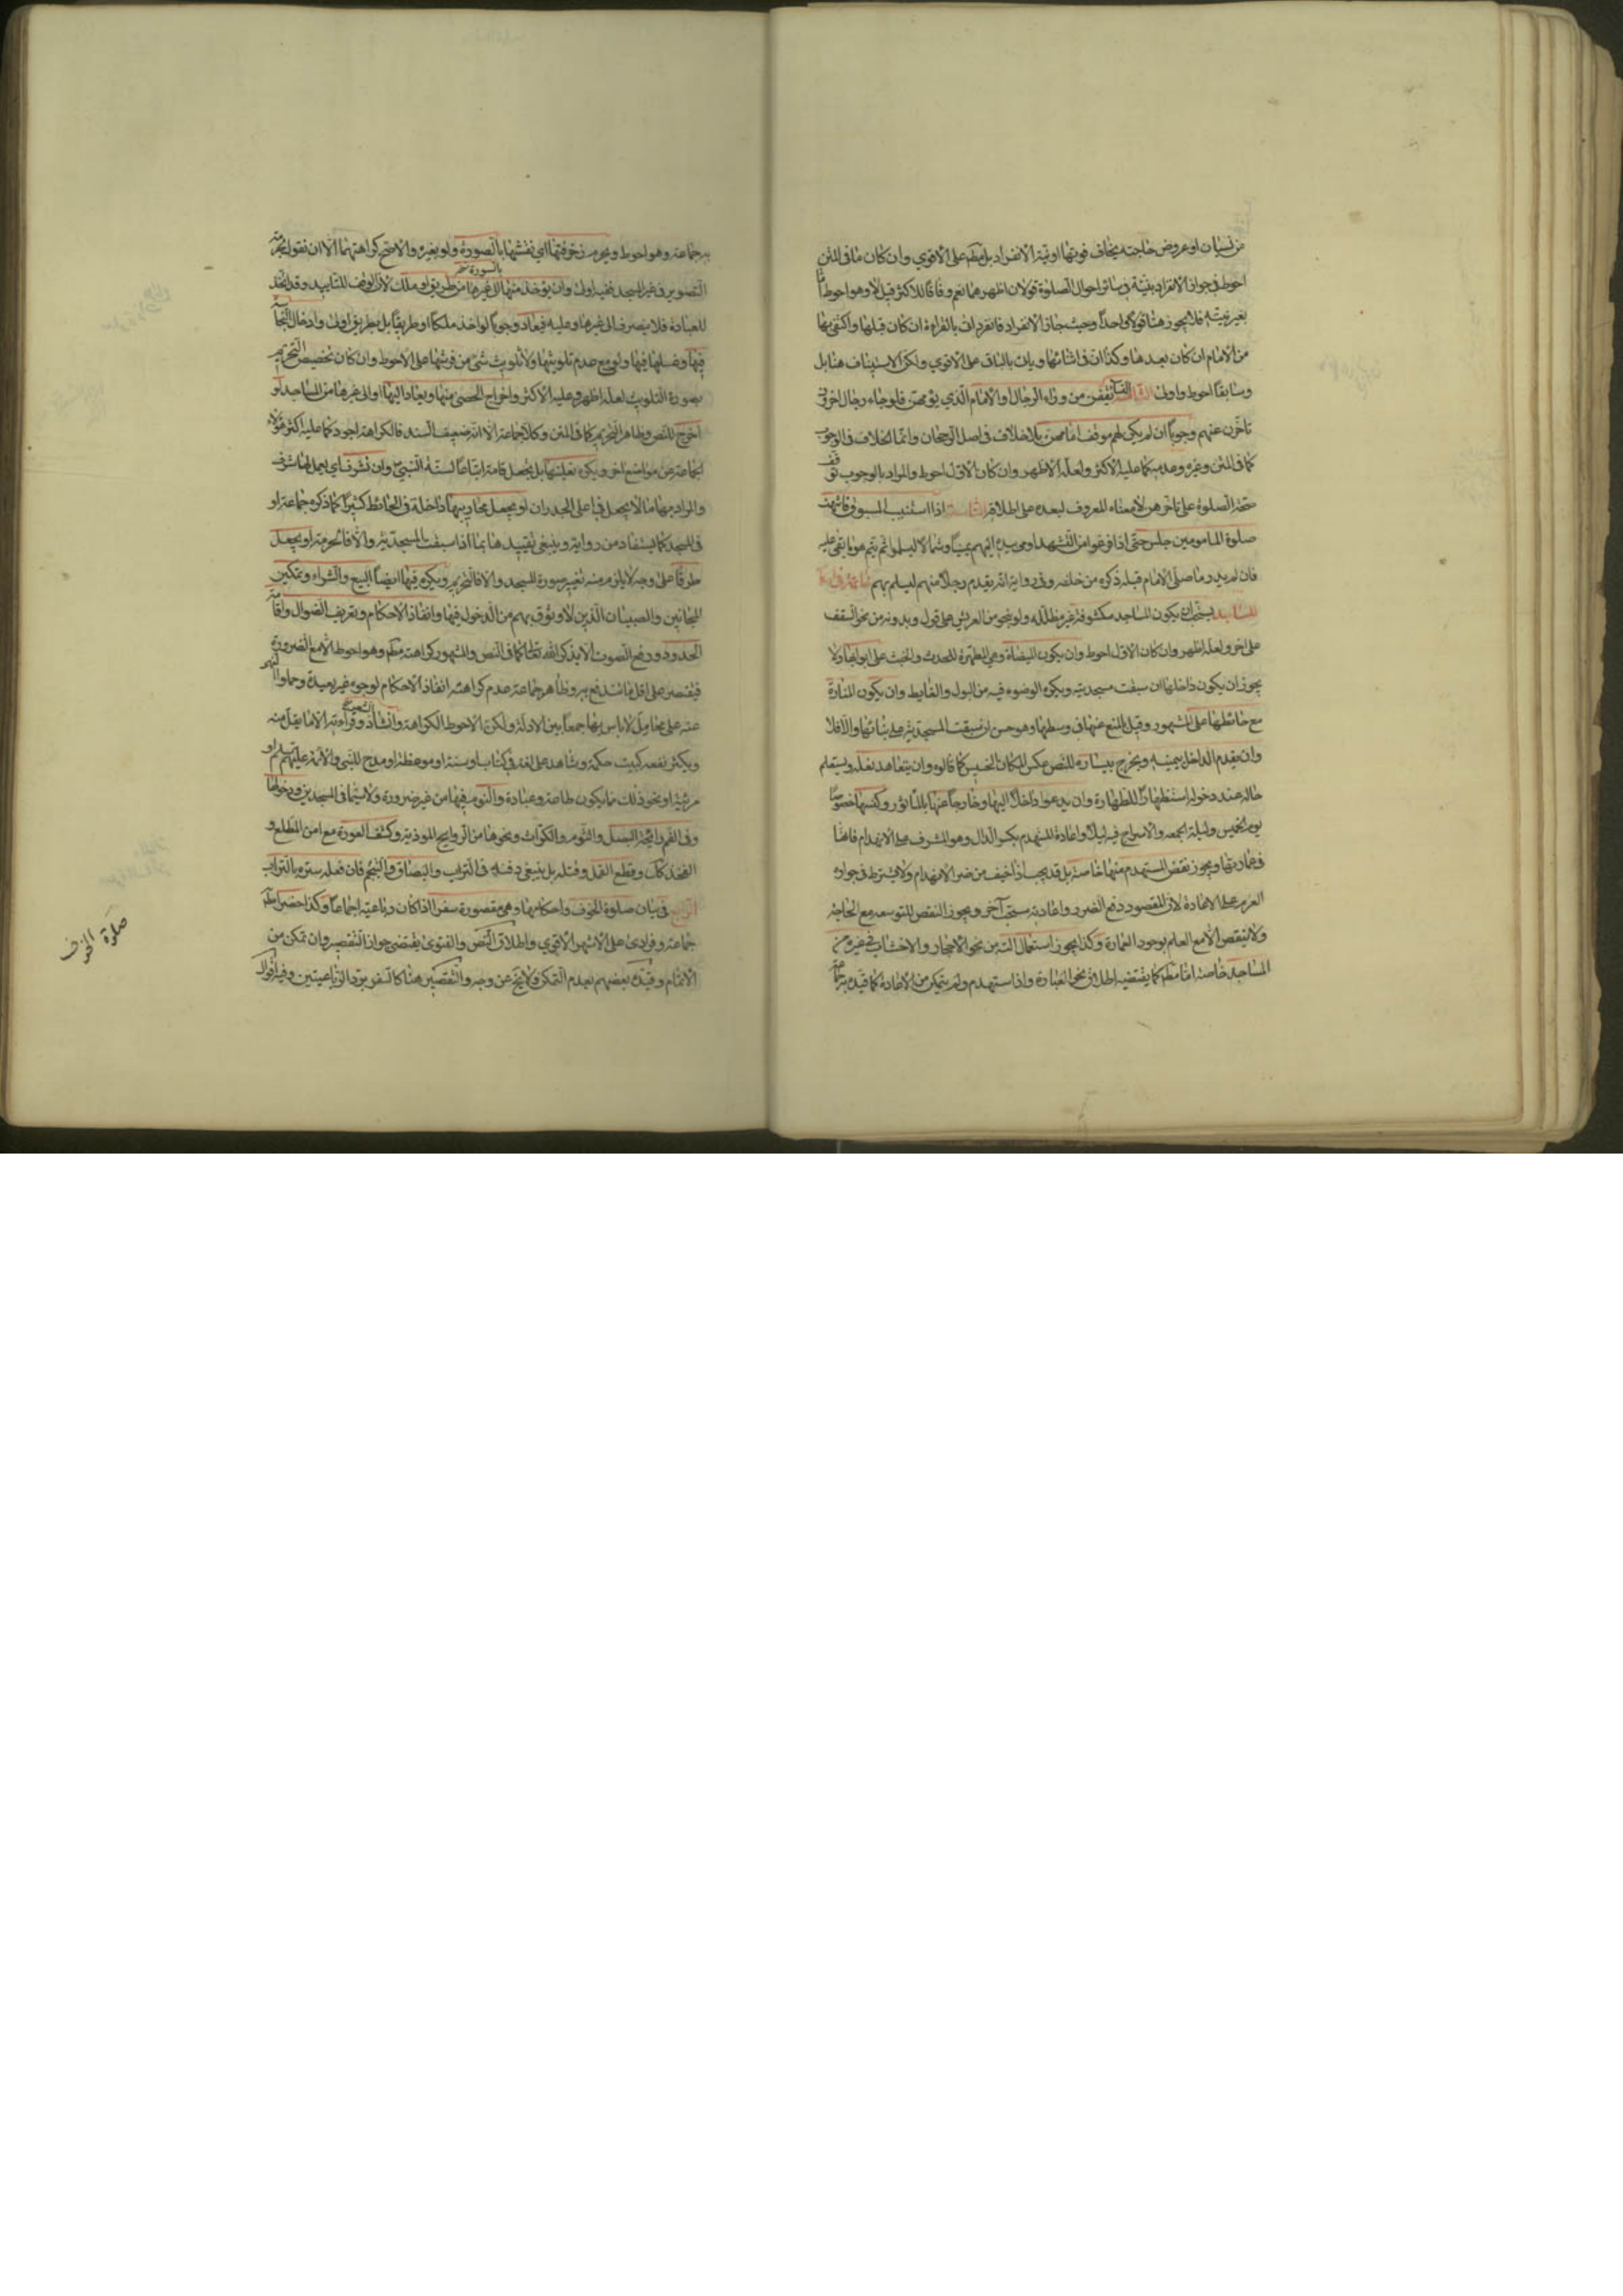 من نسيان او عروض حاجته يخاف فوتها او نية الانفراد بل مطم على الاقوي وان كان ما في المتن
احوط في جواز الانفراد بنية في سائر احوال الصلوة قولان اظهرهما نعم وفاقا للاكثر قيل لا وهو احوط اما
بغير نيته فلا يجوز هنا قولا واحدا وحيث جاز الانفراد فانفرد ات بالقراءة ان كان قبلها واكتفى بها
من الامام ان كان بعدها وكذا ان في اثنائها ويات بالباقى على الاقوي ولكن الاستيناف هنا بل
وسابقا احوط واولى النساء يقفن من وراء الرجال او الامام الذي يؤمهن فلو جاء رجال اخرون
تاخرن عنهم وجوبا ان لم يكن لهم موقف امامهن بلا خلاف في اصل الرجحان وانما الخلاف في الوجوب
كما في المتن وغيره وعدمه كما عليه الاكثر ولعله الاظهر وان كان الاول احوط والمراد بالوجوب توقف
صحة الصلوة على تاخرهن لا معناه المعروف لبعده على اطلاقه اذا استنيب المسبوق فانتهت
صلوة المامومين جلس حتى اذا فرغوا من التشهد اومى بيده اليهم يمينا وشمالا ليسلموا ثم يتم هو ما بقى عليه
فان لم يدر ما صلى الامام قبله ذكره من خلفه وفي رواية انه يقدم رجلا منهم ليسلم بهم خاتمة في
المساجد يستحب ان يكون المساجد مكشوفة غير مظللة ولو بنحو من العريش على قول وبدونه من نحو السقف
على اخر ولعله اظهر وان كان الاول احوط وان يكون الميضاة وهي المطهرة للحدث والخبث على ابوابها ولا
يجوز ان يكون داخلها ان سبقت مسجديته ويكره الوضوء فيه من البول والغايط وان يكون المنارة
مع حائطها على المشهور وقيل بالمنع عنها في وسطها وهو حسن ان سبقت المسجدية على بنائها والا فلا
وان يقدم الداخل بيمينه ويخرج بيساره للنص عكس المكان الخسيس كما قالوه وان يتعاهد نعله ويستعلم
حاله عند دخوله استظهارا للطهارة وان يدعوا داخلا اليها وخارجا عنها بالماثور وكنسها خصوصا
يوم الخميس وليلة الجمعه والاسراج فيه ليلا واعادة المستهدم بكسر الدال وهو المشرف على الانهدام
في عمارتها ويجوز نقض المستهدم منها خاصة بل قد يجب اذا خيف من ضرر الانهدام ولا يشترط في جوازه
العزم على الاعادة لان المقصود دفع الضرر واعادته مستحب آخر ويجوز النقض للتوسعه مع الحاجة
ولا ينقض الا مع العلم بوجود العمارة وكذا يجوز استعمال آلته من نحو الاحجار والاخشاب في غيره من
المساجد خاصة اما مطم كما يقتضيه اطلاق نحو العبارة واذا استهدم ولم يتمكن من الاعادة كما قيده به جماعة
به جماعة وهو احوط ويحرم زخرفتها اي نقشها بالصورة ولو بغيره والاصح كراهتهما الا ان نقول بحرمة
بالصورة
التصوير في غير المسجد ففيه اولى وان يؤخذ منها الى غيرها من طريق او ملك لان الوقف للتابيد وقد اتخذ
للعبادة فلا ينصرف الى غيرها وعليه فيعاد وجوبا لو اخذ ملكا او طريقا بل بطريق اولى وادخال النجاسة
فيها وغسلها فيها ولو مع عدم تلويثها ولا تلويث شئ من فرشها على الاحوط وان كان تخصيص التحريم
بصورة التلويث لعله اظهر وعليه الاكثر واخراج الحصى منها ويعاد اليها او الى غيرها من المساجد لو
اخرج للنص وظاهر التحريم كما في المتن وكلام جماعة الا انه ضعيف السند فالكراهة اجود كما عليه اكثر هؤلاء
الجماعة من مواضع اخر ويكره تعليتها بل يجعل قامة اتباعا لسنة النبي وان تشرف اي يعمل لها شرف
والمراد بها ما لا يجعل في اعلى الجدران او يجعل محاريبها داخلة في الحائط كثيرا كما ذكره جماعة او
في المسجد كما يستفاد من رواية وينبغي تقييد هنا بما اذا سبقت المسجدية والا فالحرمة او يجعل
طرقا على وجه لا يلزم منه تغيير صورة المسجد والا فالتحريم ويكره فيها ايضا البيع والشراء وتمكين
المجانين والصبيان الذين لا وثوق بهم من الدخول فيها وانفاذ الاحكام وتعريف الضوال واقامة
الحدود ورفع الصوت الا بذكر الله تعالى كما في النص والمشهور كراهته مطم وهو احوط الا مع الضرورة
فيقتصر على اقل ما تندفع به وظاهر جماعة عدم كراهة انفاذ الاحكام لوجوه غير بعيدة وحملوا النهي
عنه على محامل لا باس بها جمعا بين الادلة ولكن الاحوط الكراهة وانشاد الشعر وقراءته الا ما يقل منه
ويكثر نفعه كبيت حكمة وشاهد على لغة في كتاب او سنة او موعظة او مدح للنبي والائمة عليهم السلام او
مرثية او نحو ذلك مما يكون طاعة وعبادة والنوم فيها من غير ضرورة ولا سيما في المسجدين ودخولها
وفي الفم رائحة البصل والثوم والكراث ونحوها من الروايح الموذية وكشف العورة مع امن المطلع و
الفخذ كك وقطع القمل وقتله بل ينبغي دفنه في التراب والبصاق والتنخم فان فعله ستره بالتراب
الرابع في بيان صلوة الخوف واحكامها وهي مقصورة سفرا اذا كان رباعية اجماعا وكذا حضرا مطم
جماعة وفرادى على الاشهر الاقوي واطلاق النص والفتوى يقتضي جواز التقصير وان تمكن من
الاتمام وقيده بعضهم بعدم التمكن ولا يخ عن وجه والتقصير هنا كالسفر برد الرباعيتين وفي اقوال
صلوة الخوف